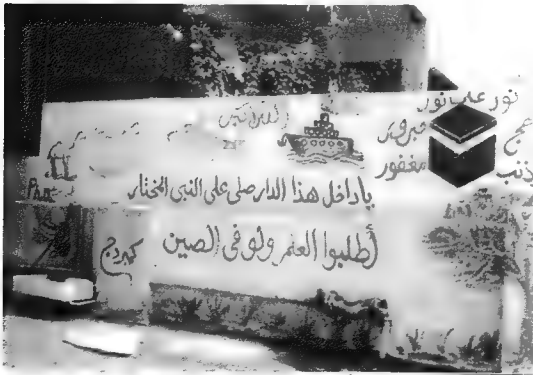 نور على نور
حج مبرور
ذنب مغفور
ياداخل هذا الدار صلى على النبى المختار
أطلبوا العلم ولو فى الصين